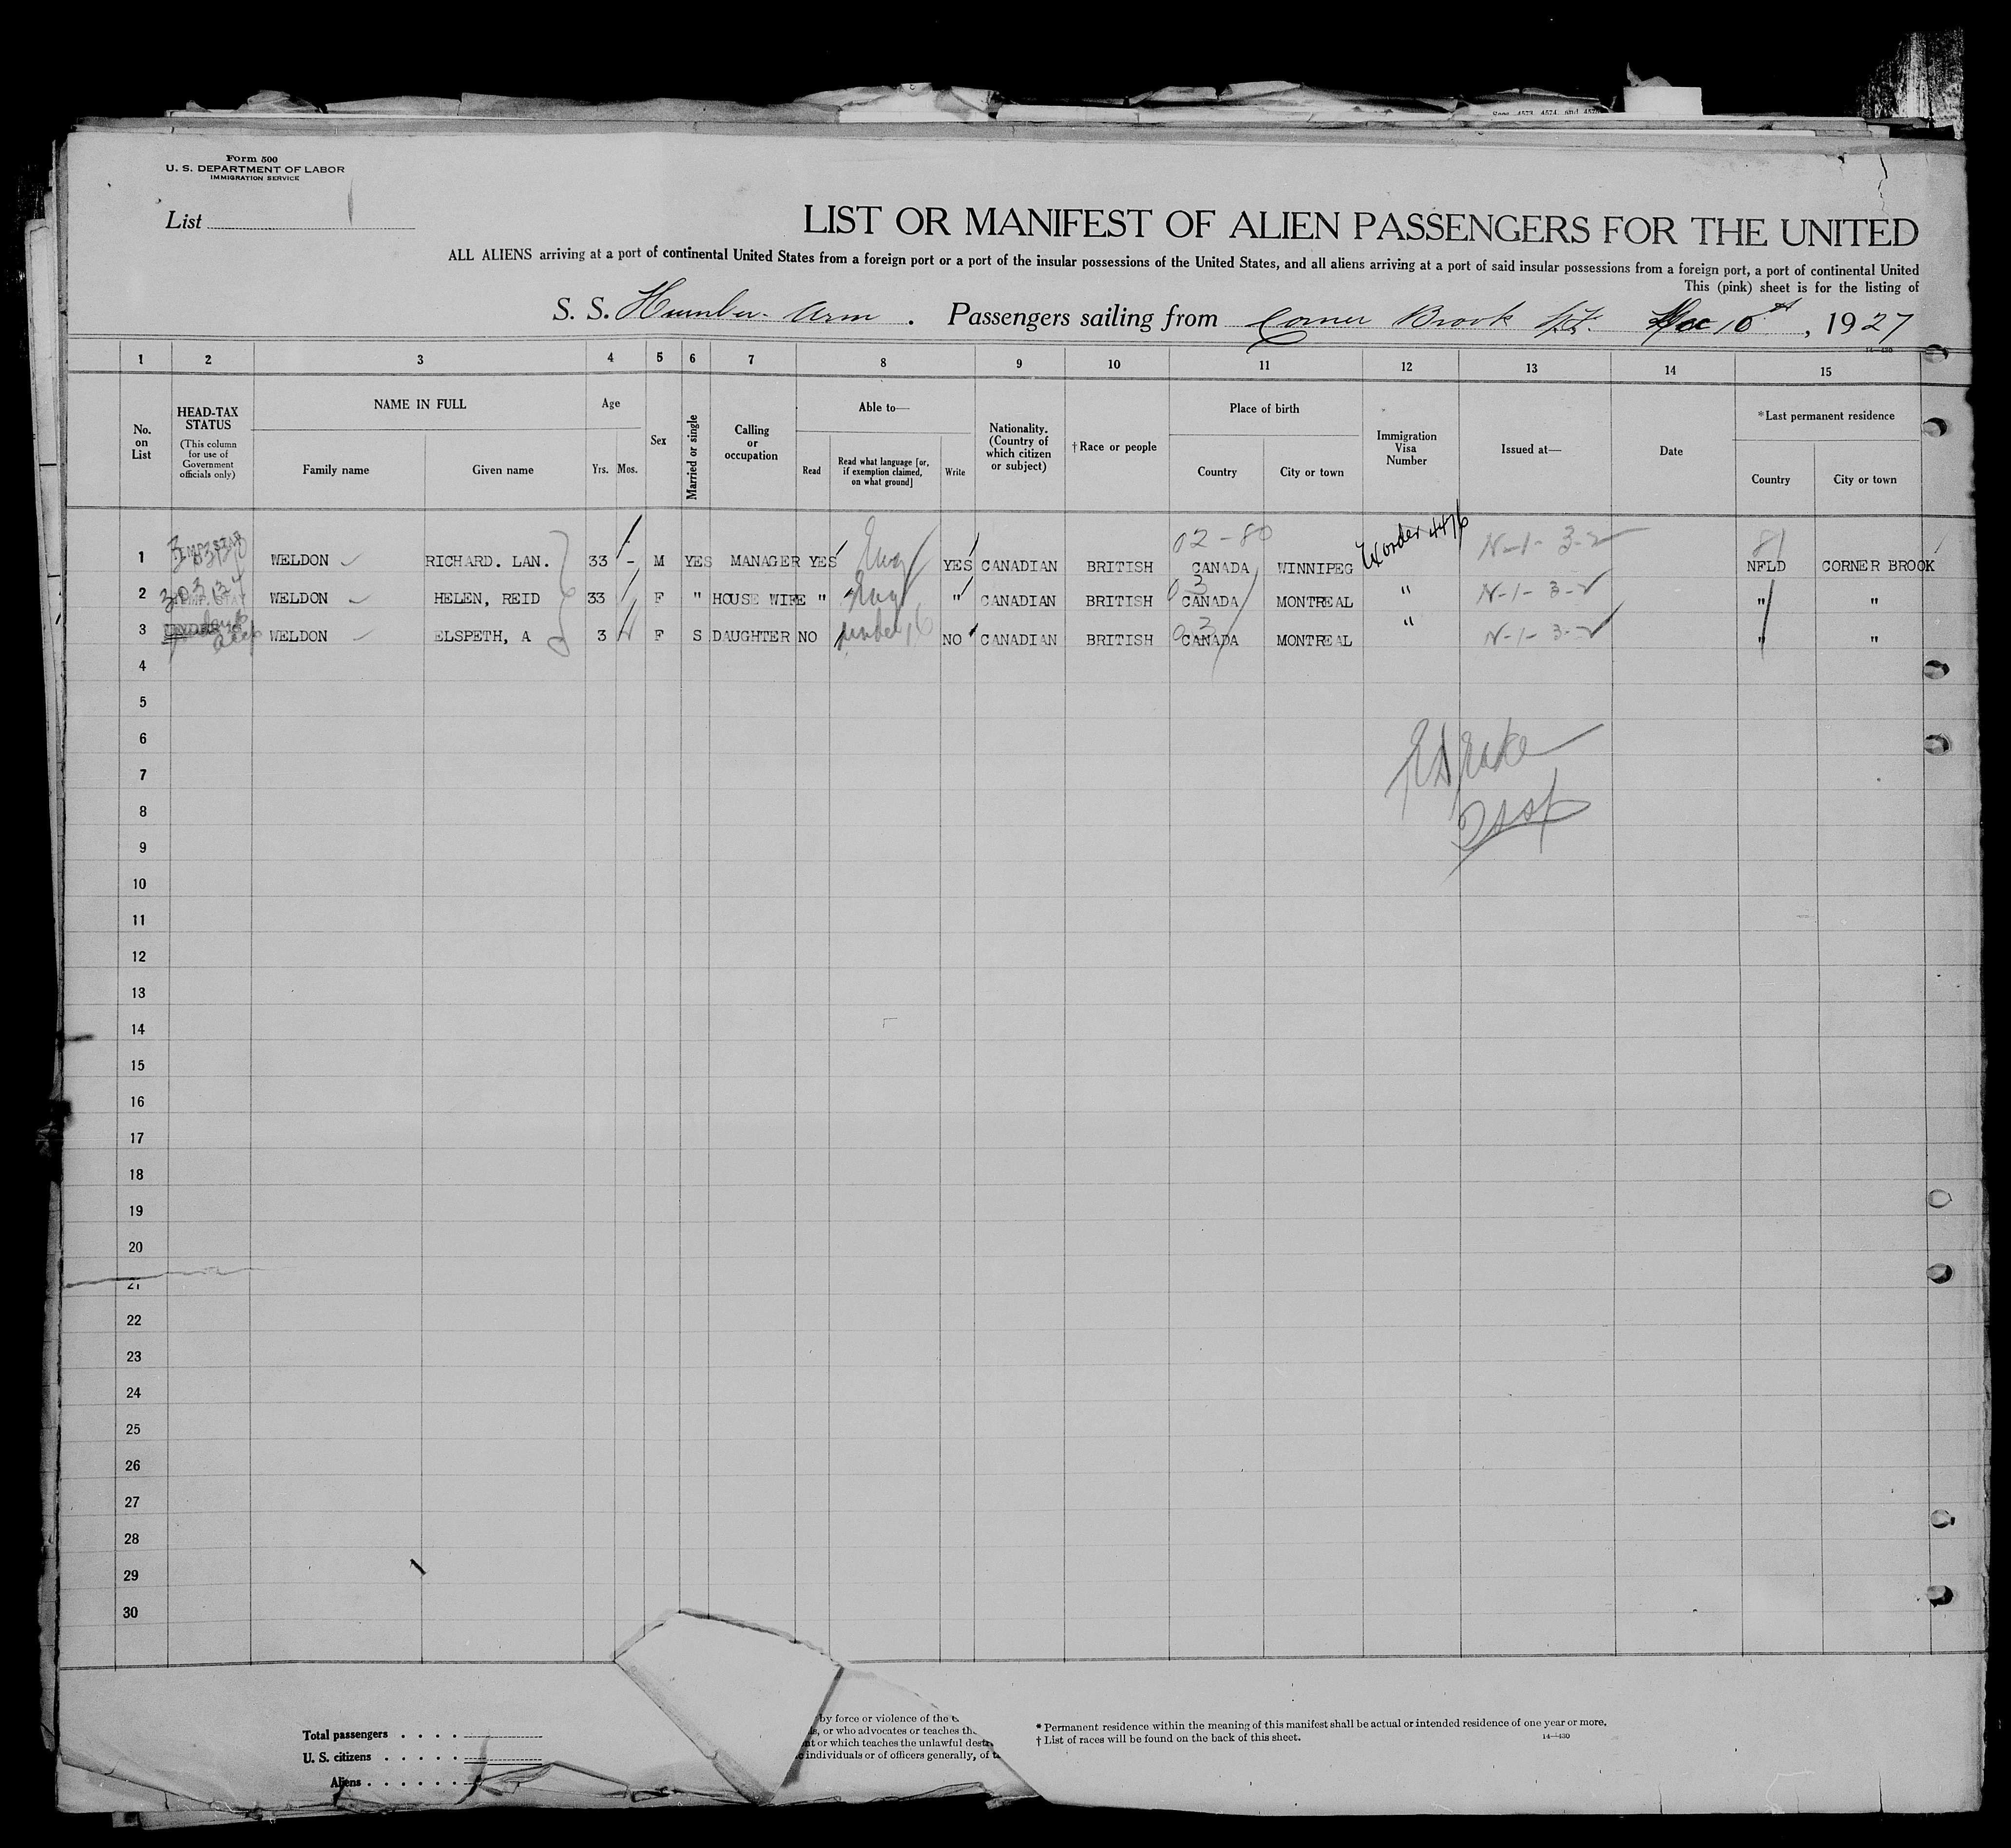 Secs. 4573, 4574, and 4575
Form 500
U. S. DEPARTMENT OF LABOR
IMMIGRATION SERVICE
List 1
LIST OR MANIFEST OF ALIEN PASSENGERS FOR THE UNITED
ALL ALIENS arriving at a port of continental United States from a foreign port or a port of the insular possessions of the United States, and all aliens arriving at a port of said insular possessions from a foreign port, a port of continental United
This (pink) sheet is for the listing of
S. S. Humber Arm . Passengers sailing from Corner Brook Nf. Dec 10th, 1927
14—430
1 2 3 4 5 6 7 8 9 10 11 12 13 14 15
No. on List
HEAD-TAX STATUS (This column for use of Government officials only)
NAME IN FULL
Family name Given name
Age
Yrs. Mos.
Sex
Married or single
Calling or occupation
Able to—
Read
Read what language [or, if exemption claimed, on what ground]
Write
Nationality. (Country of which citizen or subject)
†Race or people
Place of birth
Country City or town
Immigration Visa Number
Issued at—
Date
*Last permanent residence
Country City or town
02-80
1 TEMP STAY WELDON RICHARD. LAN. 33 - M YES MANAGER YES Eng YES CANADIAN BRITISH CANADA WINNIPEG Exorder 4476 N-1-3-2 81 NFLD CORNER BROOK
2 TEMP. STAY WELDON HELEN, REID 33 F " HOUSE WIFE " Eng " CANADIAN BRITISH 03 CANADA MONTREAL " N-1-3-2 " "
3 UNDER 16 WELDON ELSPETH, A 3 F S DAUGHTER NO under 16 NO CANADIAN BRITISH 03 CANADA MONTREAL " N-1-3-2 " "
4
5
6
7
8
9
10
11
12
13
14
15
16
17
18
19
20
21
22
23
24
25
26
27
28
29
30
Total passengers
U. S. citizens
Aliens
by force or violence of the
or who advocates or teaches
or which teaches the unlawful
individuals or of officers generally, of
* Permanent residence within the meaning of this manifest shall be actual or intended residence of one year or more.
† List of races will be found on the back of this sheet.
14—430